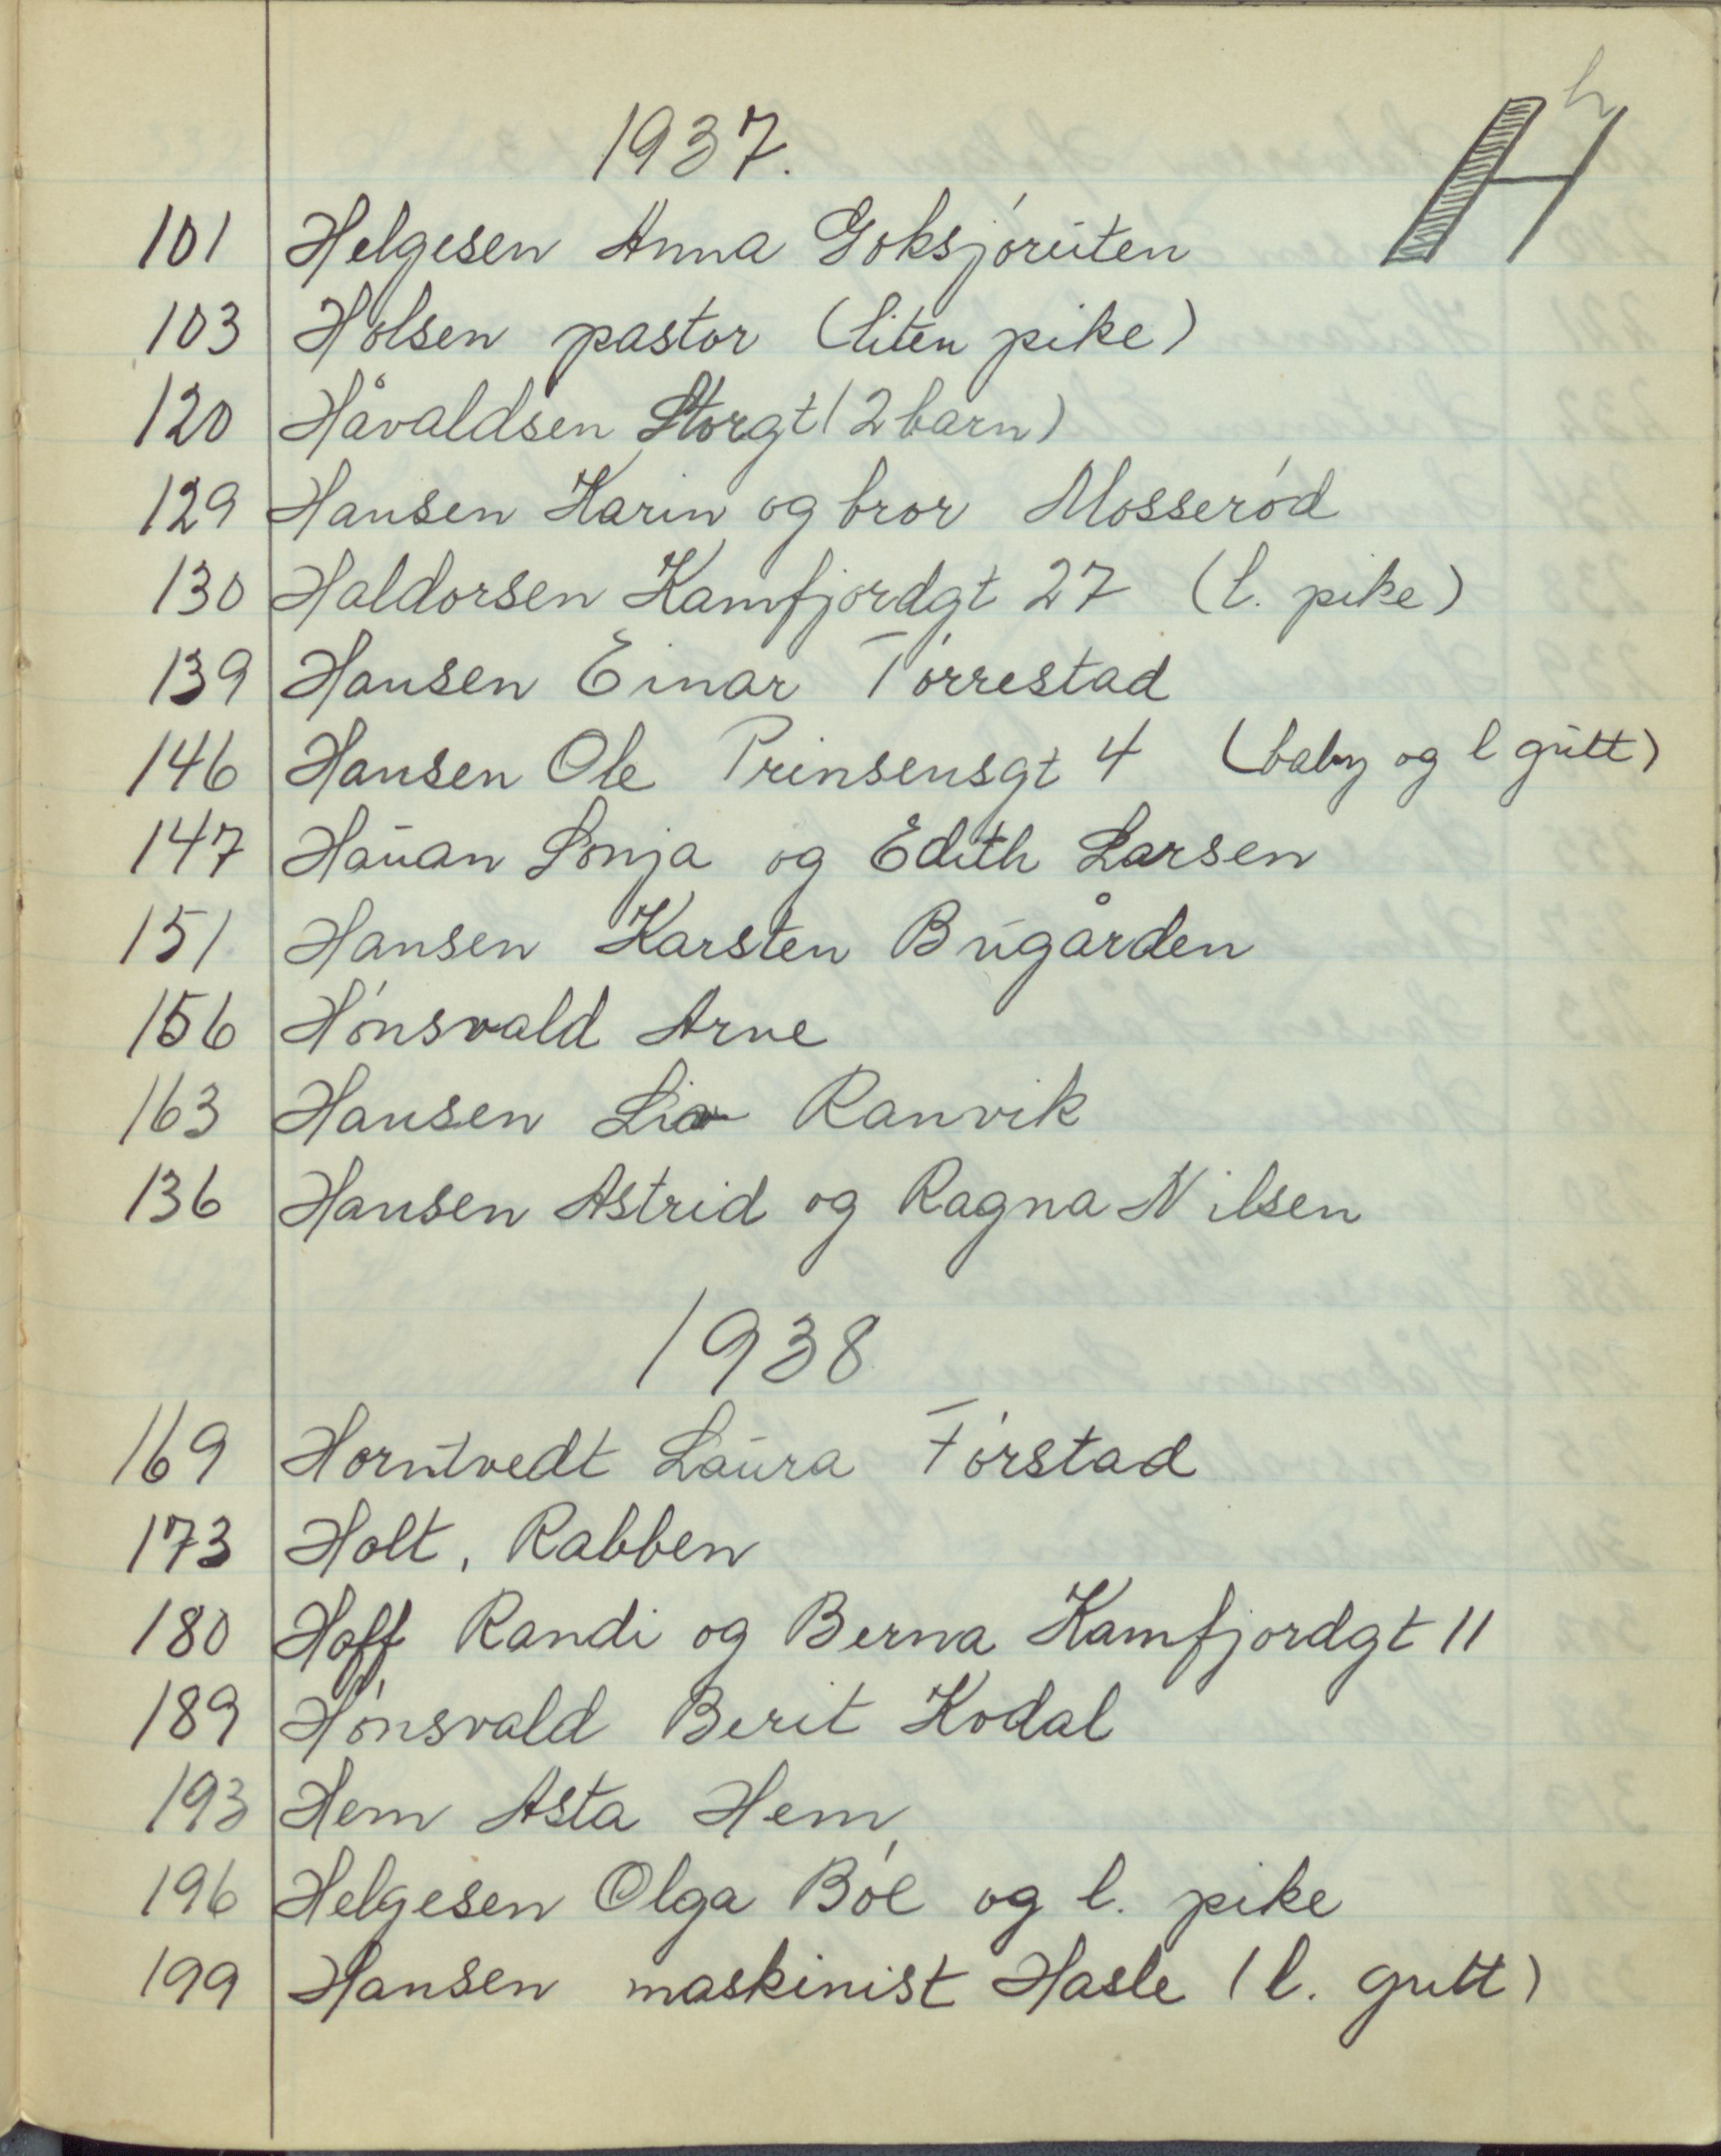 h
H
1937.
101 Helgesen Anna Goksjøruten
103 Holsen pastor (liten pike)
120 Håvaldsen Storgt (2 barn)
129 Hansen Karin og bror Mosserød
130 Haldorsen Kamfjordgt 27 (l. pike)
139 Hansen Einar Tørrestad
146 Hansen Ole Prinsensgt 4 (baby og l gutt)
147 Hauan Sonja og Edith Larsen
151 Hansen Karsten Bugården
156 Hønsvald Arne
163 Hansen Liv Ranvik
136 Hansen Astrid og Ragna Nilsen
1938
169 Horntvedt Laura Førstad
173 Holt, Rabben
180 Hoff Randi og Berna Kamfjordgt 11
189 Hønsvald Berit Kodal
193 Hem Asta Hem
196 Helgesen Olga Bøe og l. pike
199 Hansen maskinist Hasle (l. gutt)